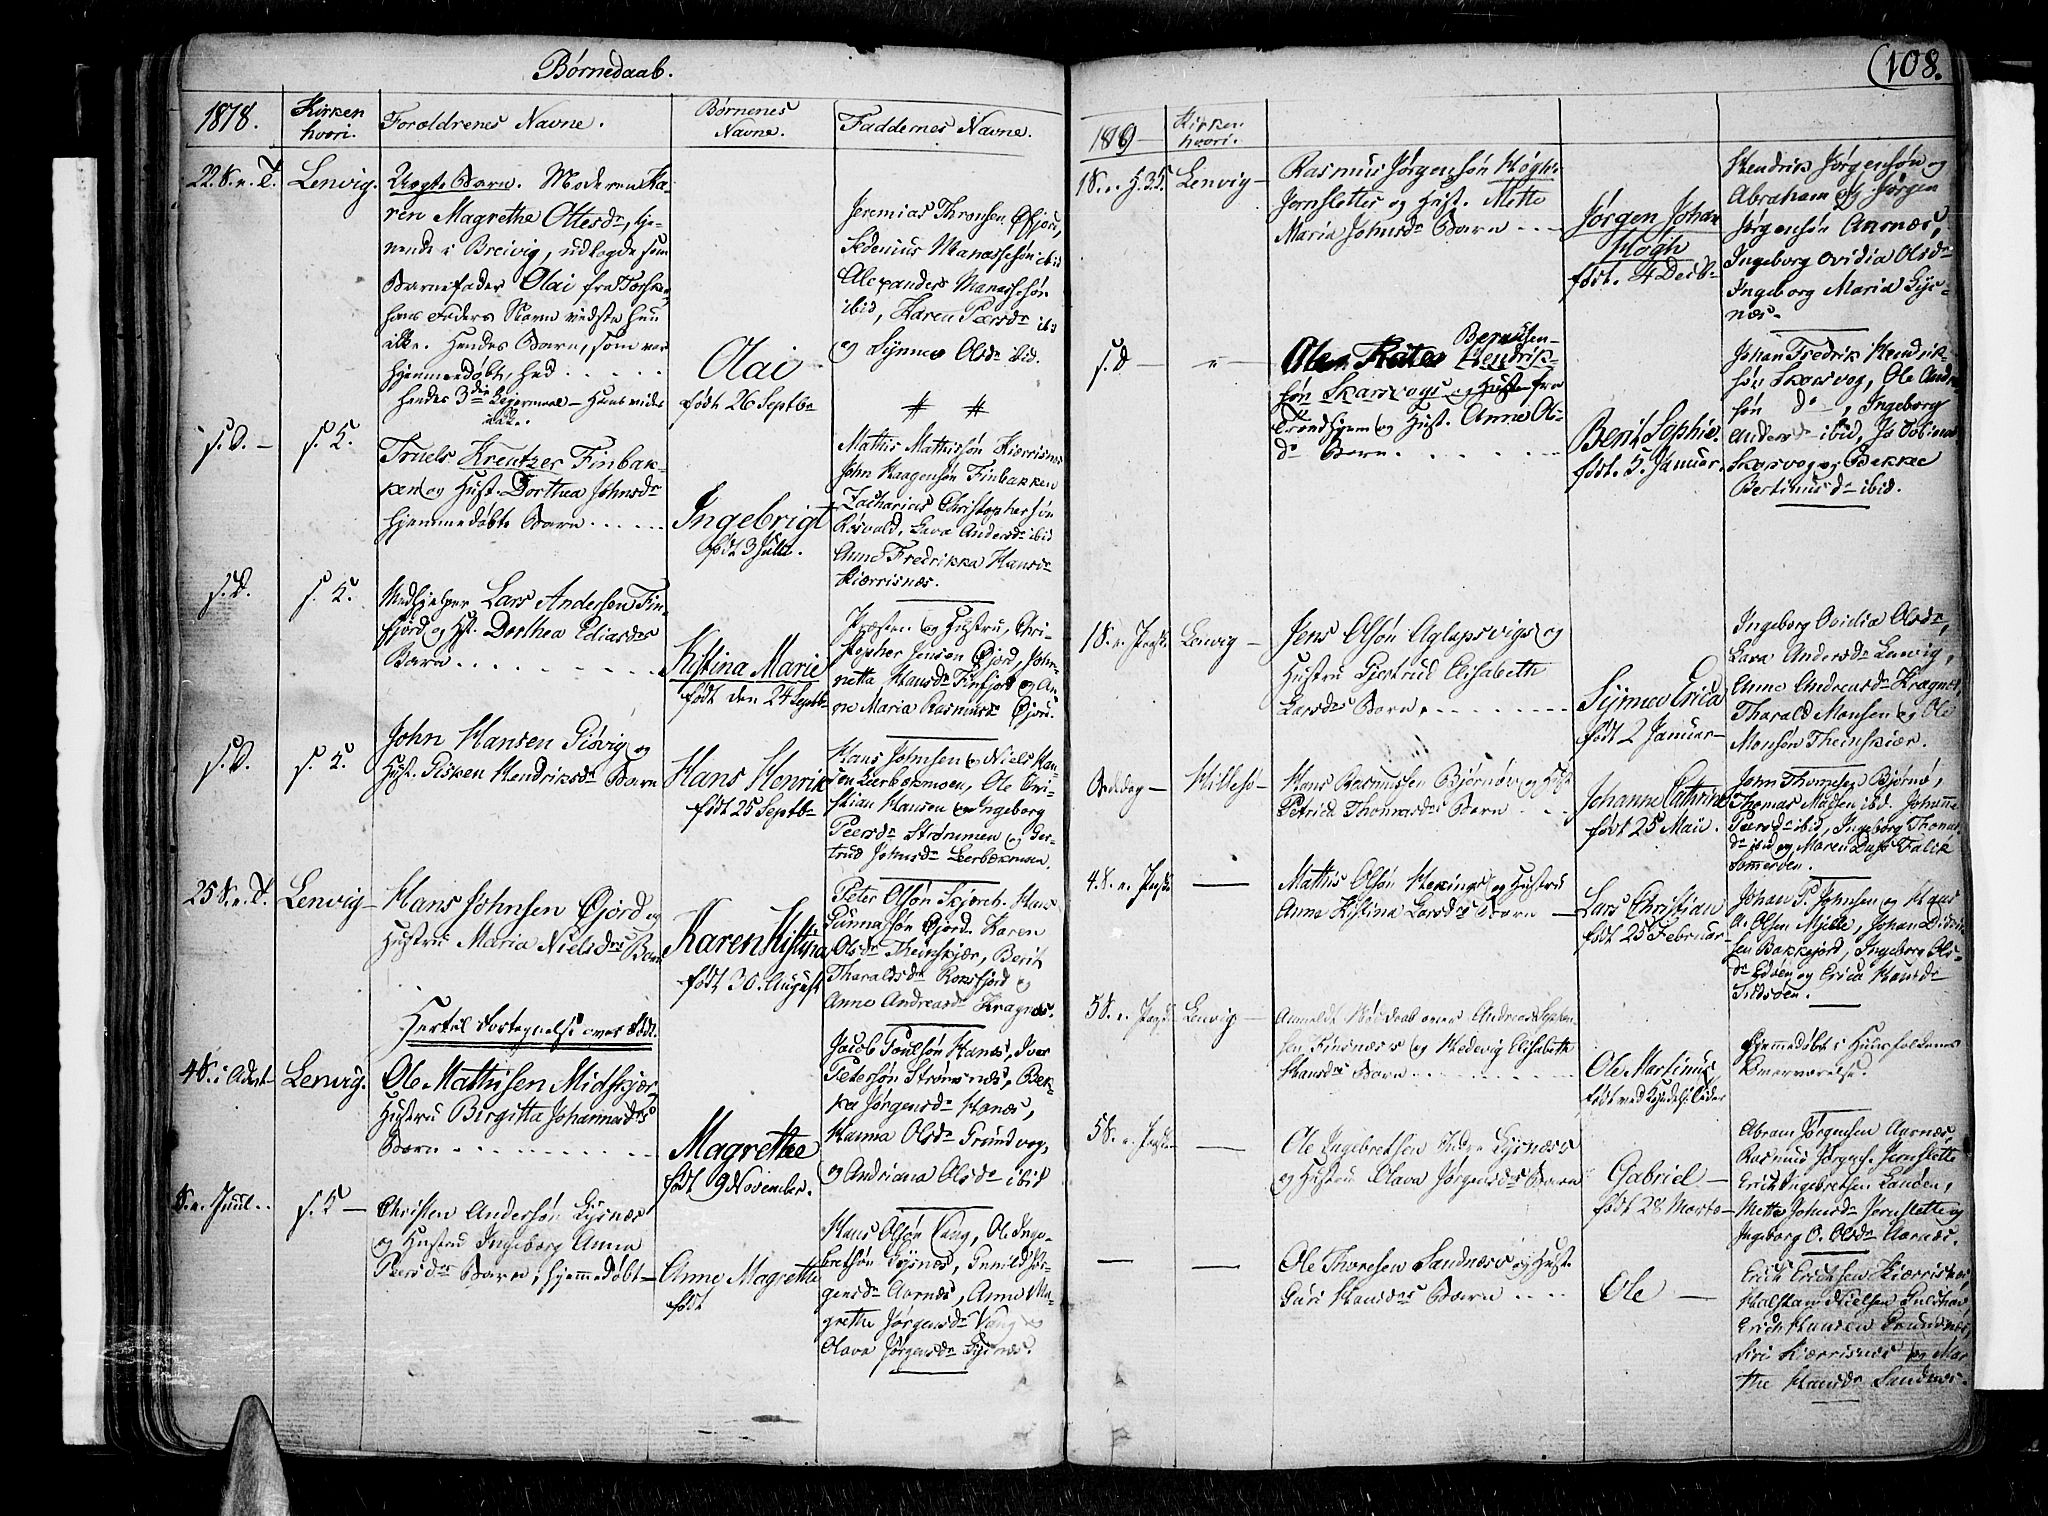 Børnedaab.
1818.
Kirken
hvori.
Forældrenes Navne.
Børnenes
Navne.
Faddernes Navne.
22. S. e. T.
Lenvig.
Uægte Barn. Moderen Ka-
ren Magrethe Ottesdr, tje-
nende i Breivig, udlagde som
Barnefader Olai fra Torske
hans Faders Navn vidste hun
ikke. Hendes Barn, som var
hjemmedøbt, hed
Hendes 3die Leiermaal
Olai
født 26 Septbr
Jeremias Thronsen Øfjord,
Sedenius Manassesøn ibid
Alexander Manassesøn
ibid, Karen Peersdr ibid
og Synneo Olsdr ibid.
s. D. -
s. K.
Truels Kreutzer Finbak-
ken og Hust. Dorthea Johnsdr
hjemmedøbte Barn
Ingebrigt
født 3 Julii.
Mathis Mathissøn Kiærrisnes
John Haagensøn Finbakken
Zacharias Christophersøn
Røsvald, Lava Andersdr ibid
Anne Fredrikka Hansdr
Kiærrisnæs.
s. D.
s. K.
Medhjelper Lars Andersen Fin-
fjord og Hst. Dorthea Ediasdr
Barn
Kistina Marie
født den 24 Septbr
Præsten og Hustru, Chri-
stopher Jensen Øjord, John-
netta Hansdr Finfjord og An-
ne Maria Rasmusdr Øjord.
s. D.
s. K.
John Hansen Gisvig og
Hust. Gisken Hendriksdr Barn
Hans Henrik
født 25 Septbr
Hans Johnsen og Niels Han-
sen Leerbekmoen, Ole Chri-
stian Hansen og Ingeborg
Peersdr Strømmen og Ger-
trud Johnsdr Leerbekmoen.
25 S. e. T.
Lenvig
Hans Johnsen Øjord og
Hustru Maria Nielsdrs Barn
Karen Kistina
født 30. August
Peter Olsøn Skjæreth. Hans
Gunnarsøn Øjord. Karen
Olsdr Theinskjær, Berit
Tharaldsdr Rossfjord og
Anne Andreasdr Kragnæs.
Hertil Fortegnelse over Født.
4 S. i Advt
Lenvig.
Ole Mathisen Midskjær
Hustru Birgitta Johannadrs
Barn
Magrethe
født 9 November.
Jacob Poulsøn Hanæs, Iver
Petersøn Strømsnæs, Bek-
ka Jørgensdr Hanæs,
Hanna Olsdr Grundvog,
og Andriana Olsdr ibid
S. e. Juul.
s. K
Christen Andersøn Lysnæs
og Hustru Ingeborg Anna
Peersdrs Barn, hjemmedøbt
Anne Magrethe
født
Hans Olsøn Vang, Ole Inge-
bretsøn Lysnæs, Gunild Jør-
gensdr Aarnæs, Anne Ma-
grethe Jørgensdr Vang og
Olava Jørgensdr Lysnæs.
(108.
1819
Kirken
hvori.
1 S. e. H. 3 K.
Lenvig
Rasmus Jørgensøn Høgh
Jernsletten og Hust. Mette
Maria Johnsdr Barn
Jørgen Johan
Høgh
født. 4 Decbr
Hendrik Jørgensøn og
Abraham og Jørgen
Jørgensøn Aarnæs,
Ingeborg Ovidia Olsdr
Ingeborg Maria Lys-
næs.
s. d
"
Berentsen
Hendrik-
søn Skarsvog og Huste fra
Trondhjem og Hust. Anne Ol-
dr Barn.
Berit Sophie.
født. 5. Januar.
Johan Fredrik Hendrik-
søn Skarsvog, Ole Andr
søn do, Ingeborg
Andersdr ibid,
Skarsvog og Bekke
Bertinusdr ibid.
1 S. e. Paask
Lenvig
Jens Olsøn Aglapsvig og
Hustru Giertrud Elisabeth
Larsdrs Barn,
Synneo Erica
født 2 Januar
Ingeborg Ovidia Olsdr,
Lava Andersdr Lenvig,
Anne Andreasdr Kragnes,
Tharald Monsen og Ole
Monsøn Theinskiær.
Onsdag
Hillesø
Hans Rasmussen Bjørnøe og Hust
Petrica Thomasdrs Barn
Johanna Cathrina
født 25 Mai.
John Thomesen Bjørnø,
Thomas Madsen ibd. Johanna
Peersdr ibid, Ingeborg Thomas-
dr ibid og Maren Dass Falck
Sommerøen.
4. S. e. Paask
Mathis Olsøn Hekings og Hustru
Anne Kistina Larsdrs Barn
Lars Christian
født 25 Februar
Johan P. Johnsen og Hans
A. Olsen Mjelle, Johan Didrik-
sen Bakkejord, Ingeborg Ols-
dr Edøen og Erica Hansdr
Sildsøen.
5 S. e. Paask
Lenvig
Anmeldt Hiemedaab over Andreas Jeppe-
sen Finsnæs og Hedevig Elisabeth
Hansdrs Barn
Ole Martinus
Hjemmedøbt i Huusfolkenes
Nærværelse.
5 S. e. Paask
Ole Ingebretsen Lysnæs
og Hustru Olava Jørgensdrs Barn
Gabriel
født 28 Marts
Abram Jørgensen Aarnæs,
Rasmus Jørgens. Jernslette
Erich Ingebretsen Landen,
Mette Johnsdr Jernslette og
Ingeborg O. Olsdr Aarnæs.
Ole Thoresen Sandnæs og Hust.
Guri Hansdrs Barn
Ole
Erich Erichsen Kiærrisnæs
Halstan Nielsen Guldhav
Erich Hansen Grundnæs,
Siri Kiærrisnæs og Mar-
the Hansdr Sandnæs.